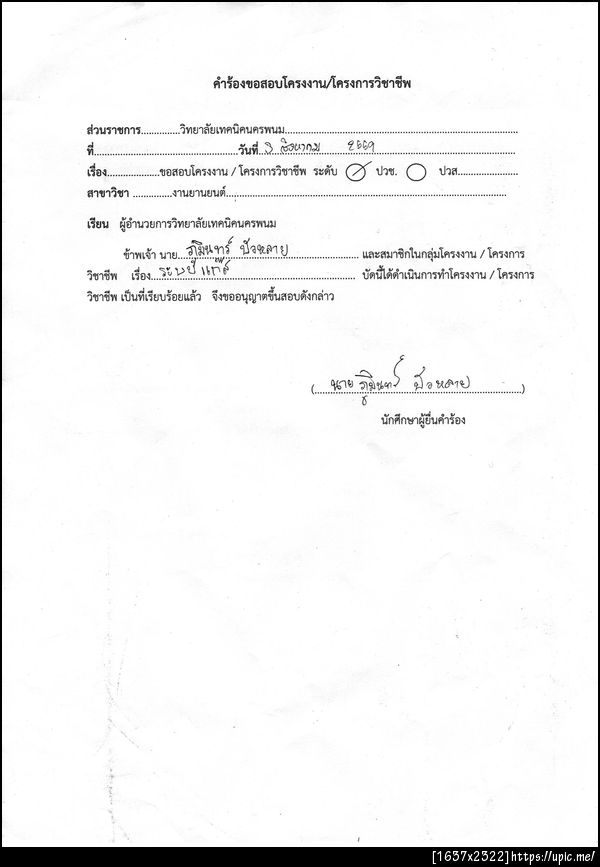 คำร้องขอสอบโครงงาน/โครงการวิชาชีพ
ส่วนราชการ..............วิทยาลัยเทคนิคนครพนม
ที่ วันที่ 3 สิงหาคม 2569
เรื่อง....................ขอสอบโครงงาน / โครงการวิชาชีพ ระดับ ปวช. ปวส.
สาขาวิชา ..............งานยานยนต์
เรียน ผู้อำนวยการวิทยาลัยเทคนิคนครพนม
ข้าพเจ้า นาย ภูมินทร์ บัวหลาย และสมาชิกในกลุ่มโครงงาน / โครงการ
วิชาชีพ เรื่อง บัดนี้ได้ดำเนินการทำโครงงาน / โครงการ
วิชาชีพ เป็นที่เรียบร้อยแล้ว จึงขออนุญาตขึ้นสอบดังกล่าว
( นาย ภูมินทร์ บัวหลาย )
นักศึกษาผู้ยื่นคำร้อง
[1637x2322]https://upic.me/